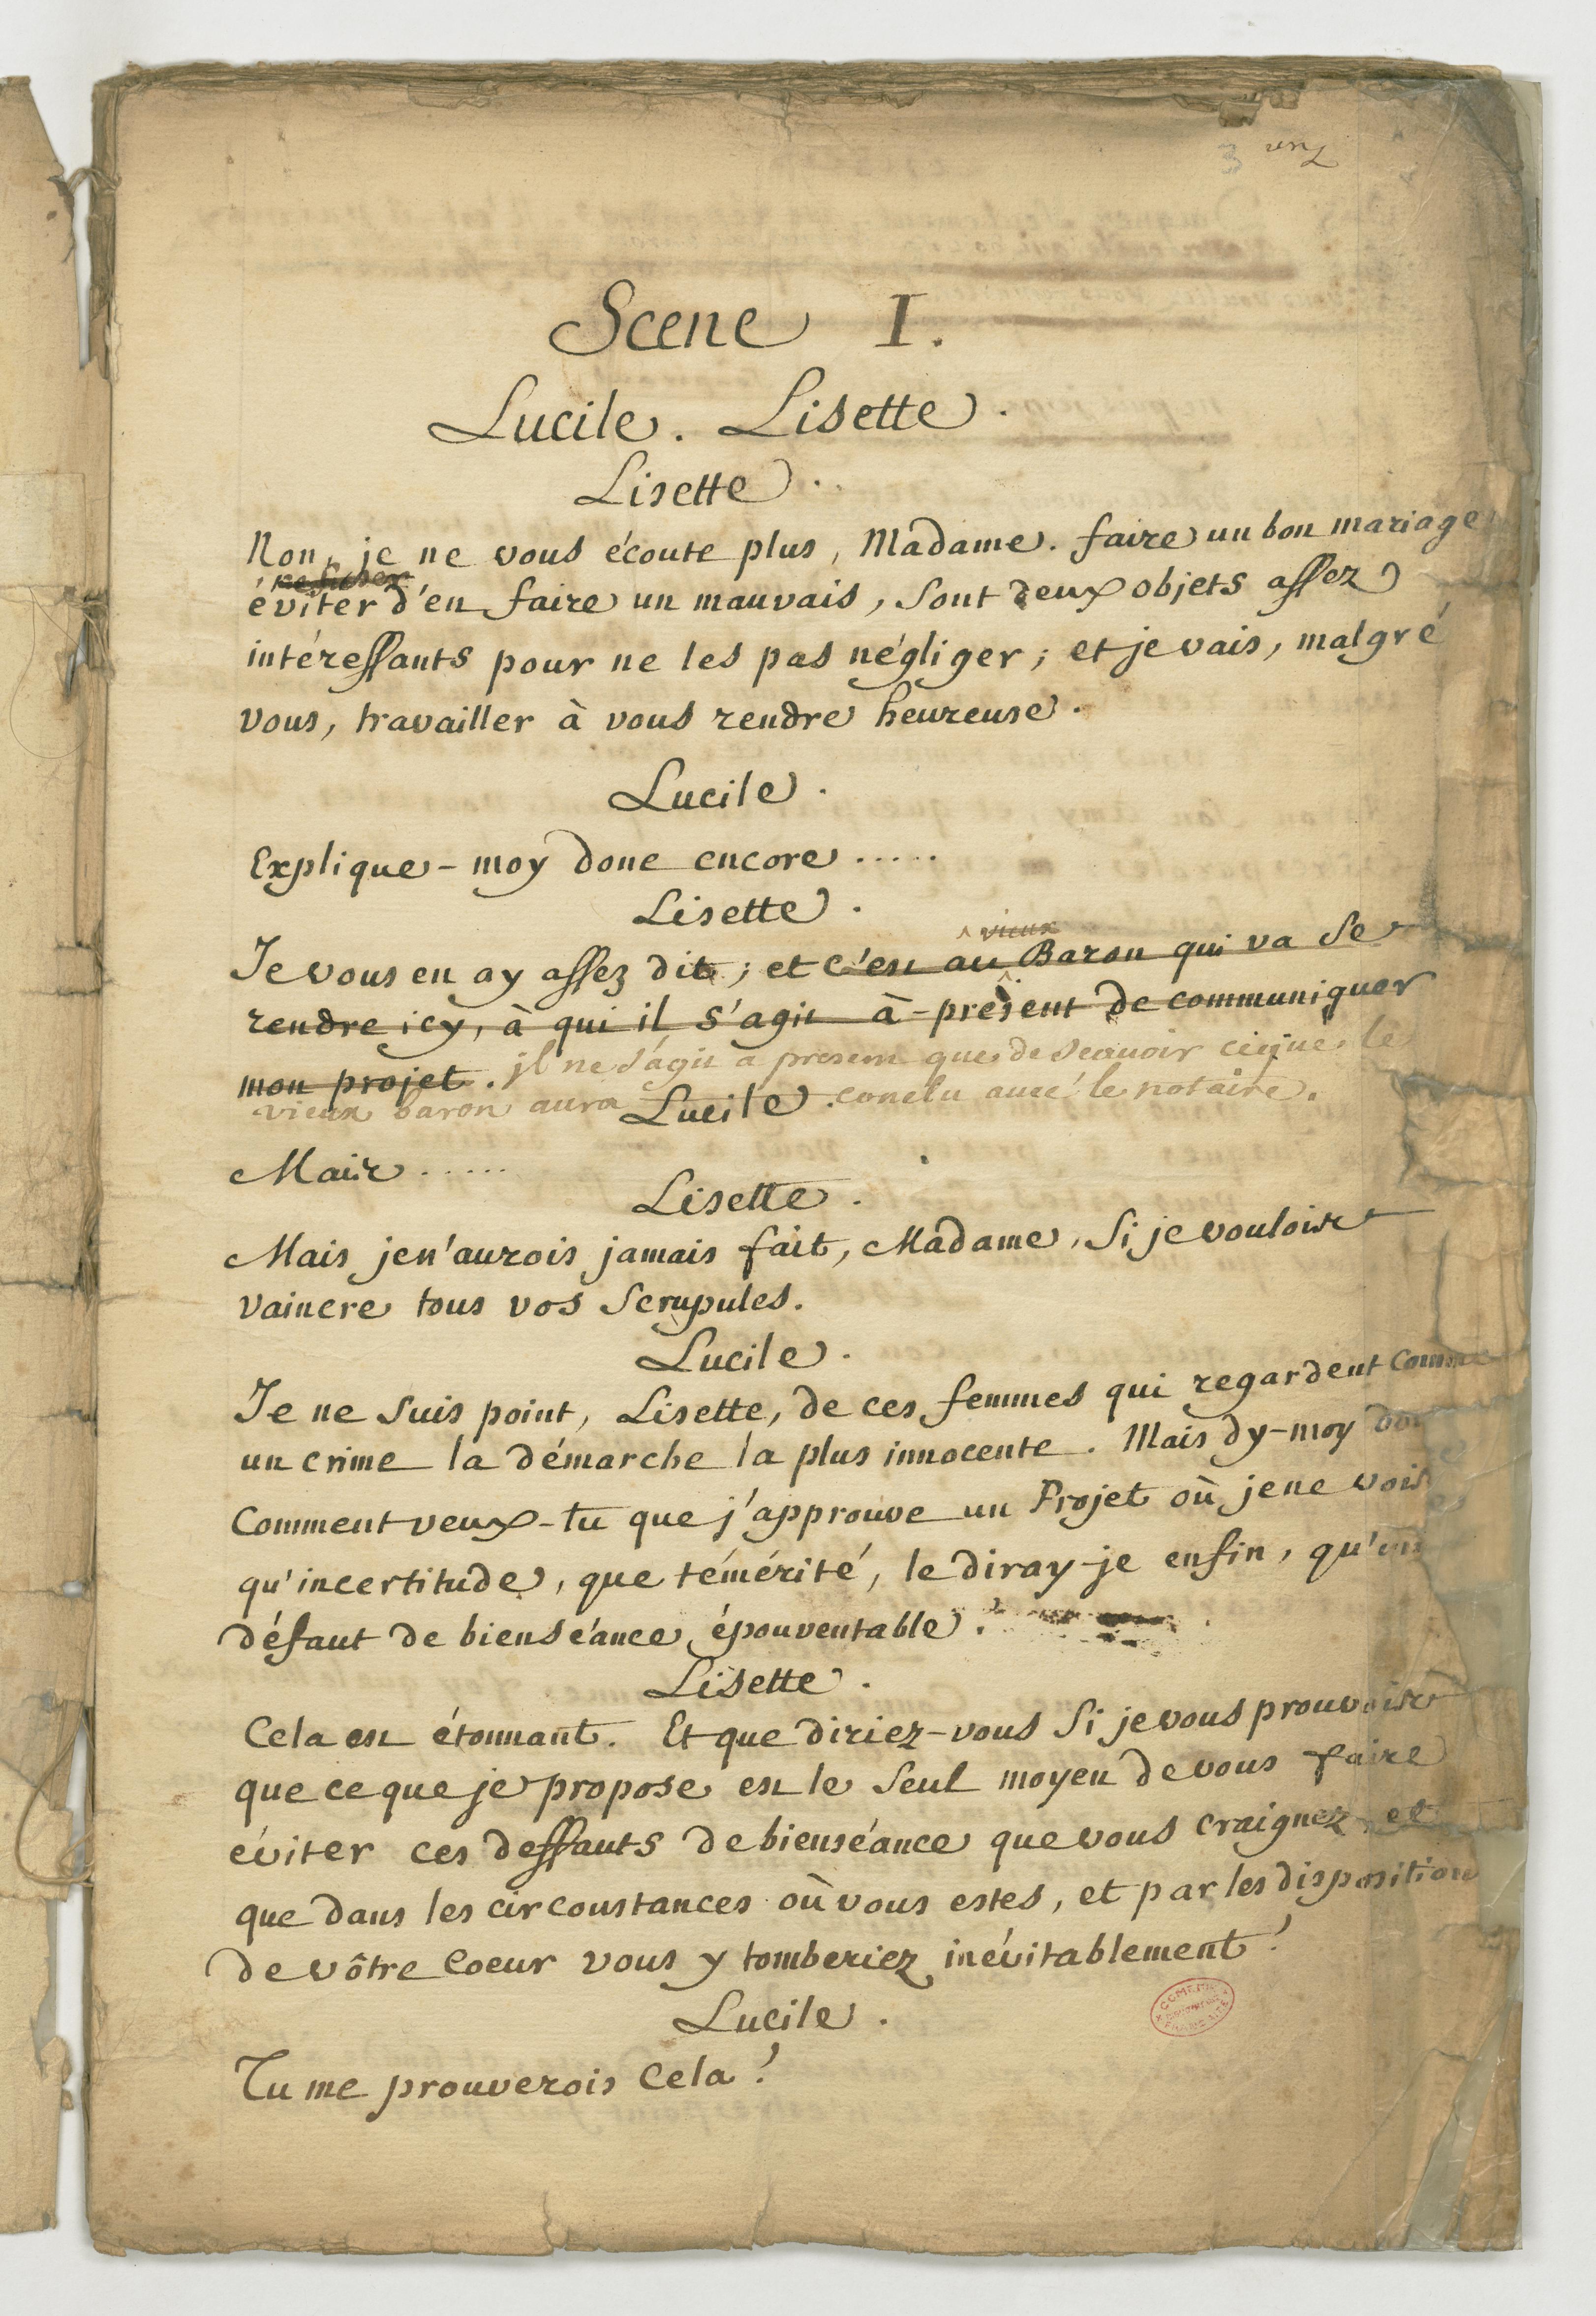 3
Scene I.
Lucile. Lisette.
Lisette.
Non, je ne vous écoute plus, Madame. faire un bon mariage
éviter d'en faire un mauvais, sont deux objets assez
intéressants pour ne les pas négliger; et je vais, malgré
vous, travailler à vous rendre heureuse.
Lucile.
Explique-moy donc encore.....
Lisette.
vieux
Je vous en ay assez dit; et c'est au Baron qui va se
rendre icy, à qui il s'agit à-présent de communiquer
mon projet. il ne s'agit a present que de sçauoir ce que le
vieux baron aura conclu auec le notaire.
Lucile.
Mais......
Lisette.
Mais je n'aurois jamais fait, Madame, si je voulois
vaincre tous vos scrupules.
Lucile.
Je ne suis point, Lisette, de ces femmes qui regardent comme
un crime la démarche la plus innocente. Mais dy-moy
Comment veux-tu que j'approuve un Projet où je ne vois
qu'incertitude, que témérité, le diray-je enfin, qu'un
défaut de bienséance épouventable.
Lisette.
Cela est étonnant. Et que diriez-vous si je vous prouvois
que ce que je propose est le seul moyen de vous faire
éviter ces deffauts de bienséance que vous craignez, et
que dans les circonstances où vous estes, et par les dispositions
de vôtre Coeur vous y tomberiez inévitablement?
Lucile.
Tu me prouverois Cela?